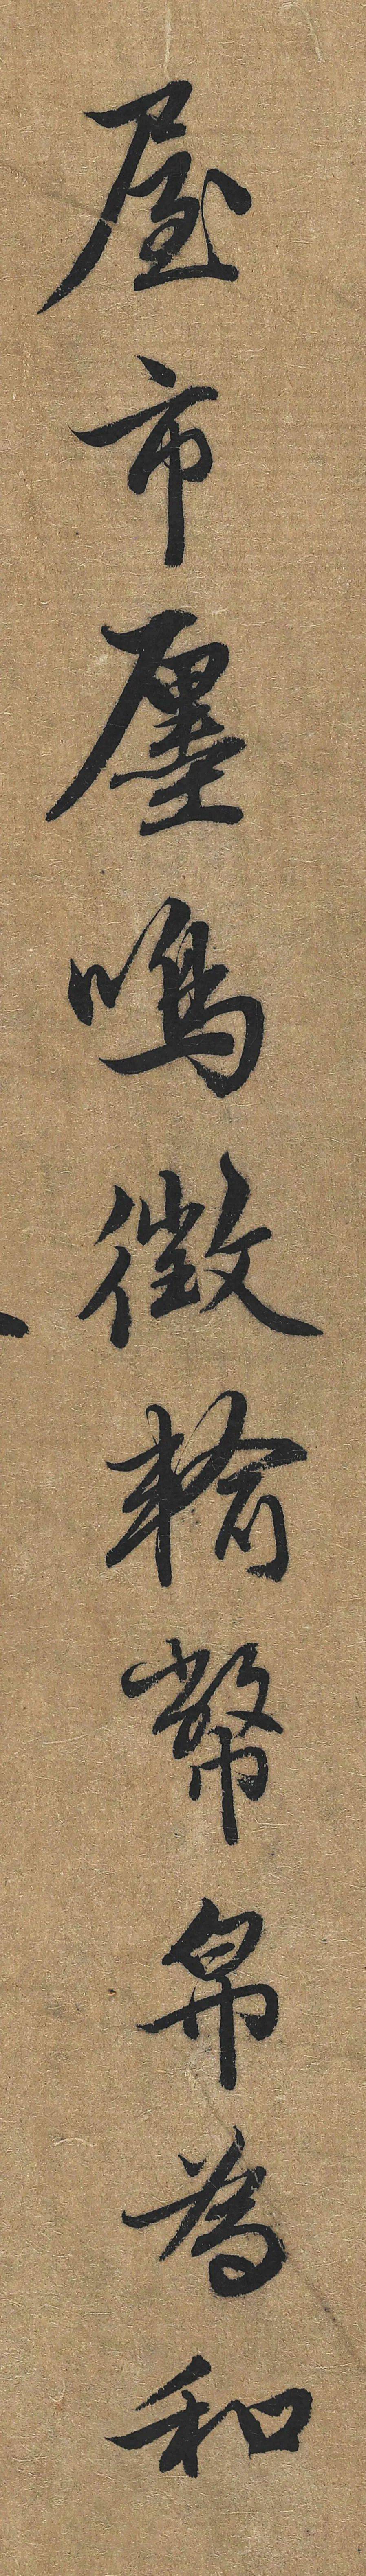 屋市廛鳴徵輸幣帛為和